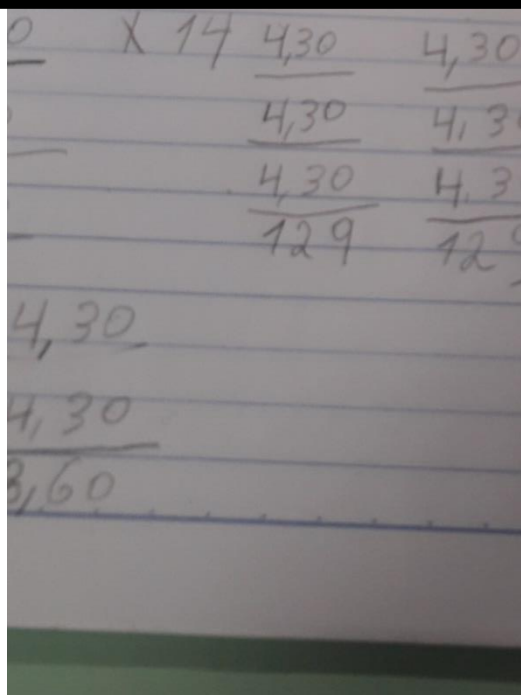 0 X 14 4,30 4,30
4,30 4,3
4,30 4,3
129 129
4,30
4,30
3,60